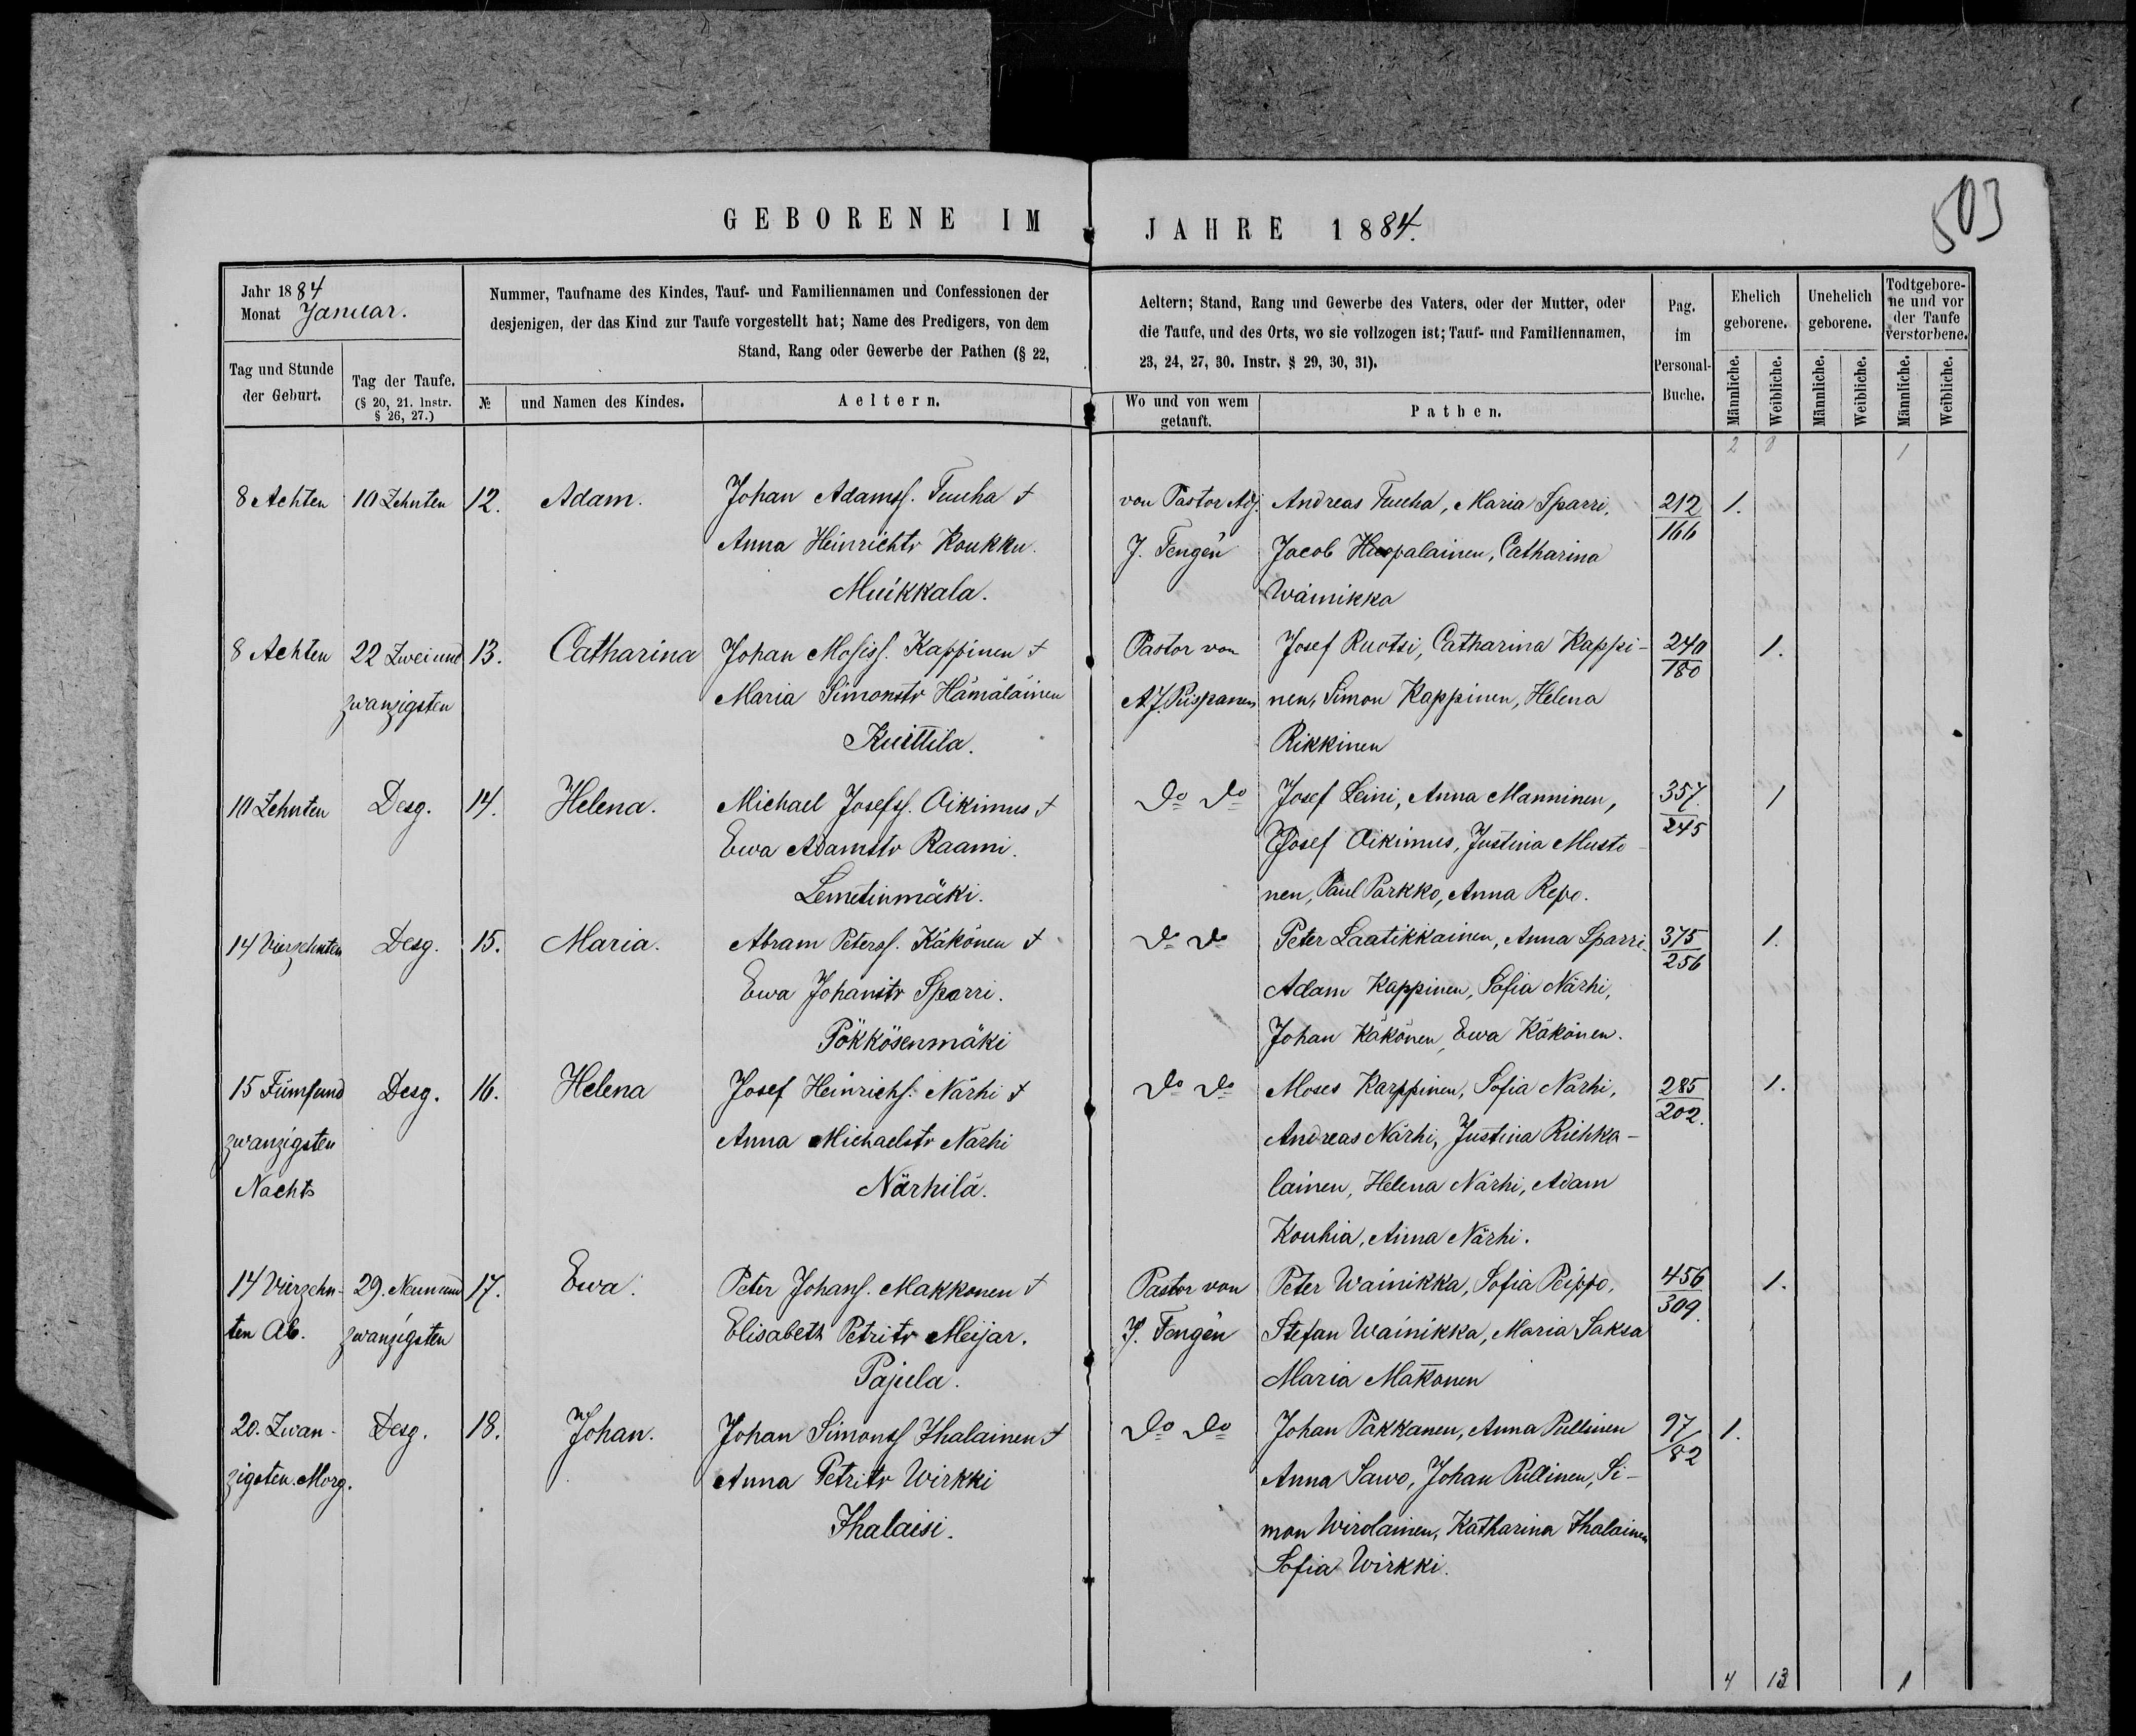 503
GEBORENE IM JAHRE 1884.
Jahr 1884
Monat Januar.
Nummer, Taufname des Kindes, Tauf- und Familiennamen und Confessionen der
desjenigen, der das Kind zur Taufe vorgestellt hat; Name des Predigers, von dem
Stand, Rang oder Gewerbe der Pathen (§ 22,
Aeltern; Stand, Rang und Gewerbe des Vaters, oder der Mutter, oder
die Taufe, und des Orts, wo sie vollzogen ist; Tauf- und Familiennamen,
23, 24, 27, 30. Instr. § 29, 30, 31).
Pag.
im
Personal-
Buche.
Ehelich
geborene.
Unehelich
geborene.
Todtgebore-
ne und vor
der Taufe
verstorbene.
Tag und Stunde
der Geburt.
Tag der Taufe.
(§ 20, 21. Instr.
§ 26, 27.)
№
und Namen des Kindes.
Aeltern.
Wo und von wem
getauft.
Pathen.
Männliche.
Weibliche.
Männliche.
Weibliche.
Männliche.
Weibliche.
2 8 1
8 Achten 10 Zehnten 12. Adam. Johan Adamss. Tuuha † von Pastor Adj. Andreas Tuuha, Maria Sparri, 212 1.
Anna Heinrichtr Koukku. J. Tengén Jacob Huopalainen, Catharina 166
Muikkala. Wäinikka
8 Achten 22 Zweiund 13. Catharina Johan Mosiss. Kappinen † Pastor von Josef Ruotsi, Catharina Kappi- 240 1.
zwanzigsten Maria Simonstr Hämäläinen A.J. Piispanen nen, Simon Kappinen, Helena 180
Kuittila. Rikkinen
10 Zehnten Desg. 14. Helena. Michael Josefss. Oikimus † Do Do Josef Leini, Anna Manninen, 357. 1
Ewa Adamstr Raami. Josef Oikimus, Justina Musto- 245
Lemetinmäki. nen, Paul Parkko, Anna Repo.
14 Vierzehnten Desg. 15. Maria. Abram Peterss. Käkönen † Do Do Peter Laatikkainen, Anna Sparri. 375 1.
Ewa Johanstr Sparri. Adam Kappinen, Sofia Närhi, 256
Pökkösenmäki Johan Käkönen, Ewa Käkönen.
15 Fümfund Desg. 16. Helena Josef Heinrichs. Närhi † Do Do Moses Karppinen, Sofia Närhi, 285 1.
zwanzigsten Anna Michaelstr Närhi Andreas Närhi, Justina Riehka- 202.
Nachts Närhilä. lainen, Helena Närhi, Adam
Kouhia, Anna Närhi.
14 Vierzehn- 29. Neunund 17. Ewa. Peter Johans. Makkonen † Pastor von Peter Wainikka, Sofia Peippo, 456 1.
ten Ab. zwanzigsten Elisabeth Petritr Meijar. J. Tengén Stefan Wainikka, Maria Saksa 309.
Pajula. Maria Makonen
20. Zwan- Desg. 18. Johan. Johan Simonss Ihalainen † Do Do Johan Pakkanen, Anna Pullinen 97 1.
zigsten. Morg. Anna Petritr Wirkki Anna Sawo, Johan Pullinen, Si- 82
Ihalaisi. mon Wirolainen, Katharina Ihalainen
Sofia Wirkki.
4 13 1